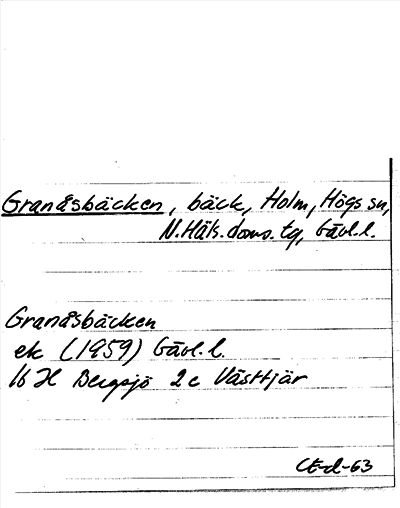 Granåsbäcken, bäck, Holm, Högs sn,
N.Häls.doms.tg, Gävl.l.
Granåsbäcken
ek (1959) Gävl.l.
16 H Bergsjö 2c Västtjär
CE-d-63